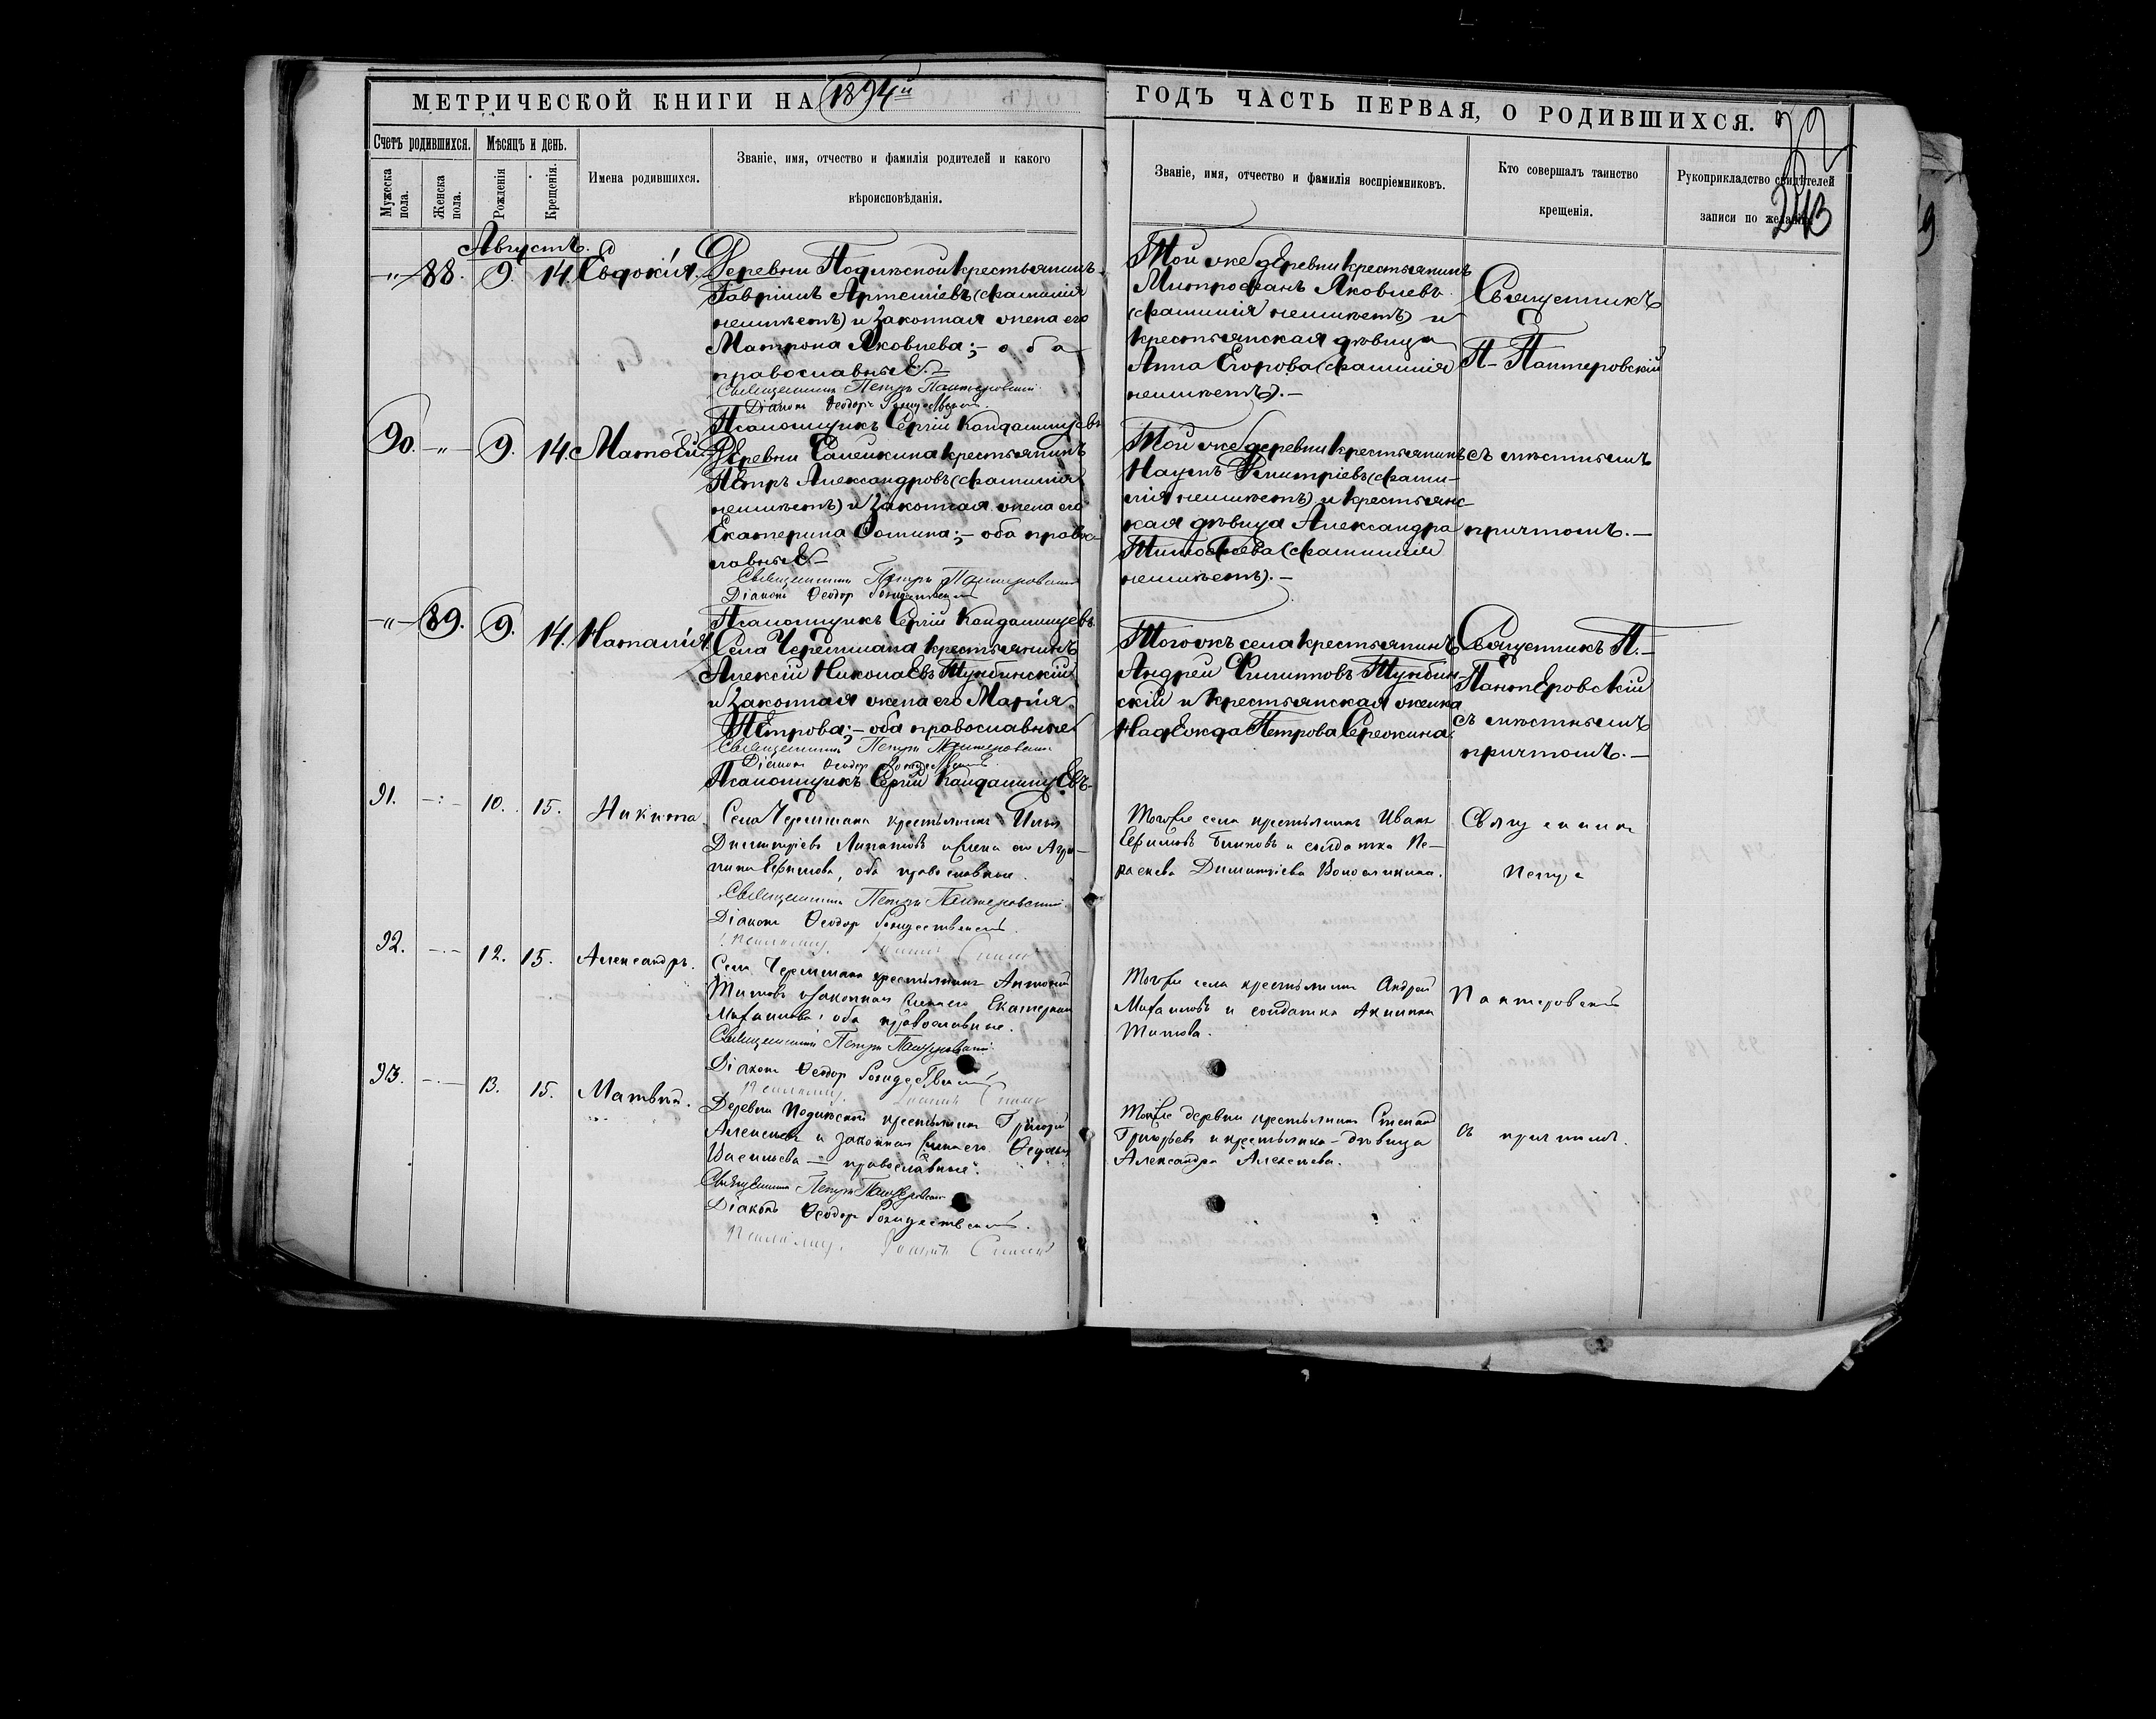 МЕТРИЧЕСКОЙ КНИГИ НА 1894й
ГОДЪ ЧАСТЬ ПЕРВАЯ, О РОДИВШИХСЯ.
243
Счетъ родившихся.
Мужеска пола.
Женска пола.
Мѣсяцъ и день.
Рожденія
Крещенія.
Имена родившихся.
Званіе, имя, отчество и фамилія родителей и какого
вѣроисповѣданія.
Званіе, имя, отчество и фамилія воспріемниковъ.
Кто совершалъ таинство
крещенія.
Рукоприкладство свидѣтелей
записи по желанію.
Августъ.
-"- 88. 9. 14. Евдокія.
Деревни Подлѣсной крестьянинъ
Гавріилъ Артеміевъ (фамиліи
неимѣетъ) и законная жена его
Матрона Яковлева; - оба
православные. -
Священникъ Петръ Пантеровскій.
Діаконъ Ѳеодоръ Рождественскій.
Псаломщикъ Сергій Кандалинцевъ
Той же деревни крестьянинъ
Митрофанъ Яковлевъ
(фамиліи неимѣетъ) и
крестьянская дѣвица
Анна Егорова (фамиліи
неимѣетъ). -
Священникъ
П. Пантеровскій
90. -"- 9. 14. Матѳей.
Деревни Салейкина крестьянинъ
Петръ Александровъ (фамиліи
неимѣетъ) и законная жена его
Екатерина Фомина; - оба право-
славные. -
Священникъ Петръ Пантеровскій
Діаконъ Ѳеодоръ Рождественскій
Псаломщикъ Сергій Кандалинцевъ.
Той же деревни крестьянинъ
Наумъ Димитріевъ (фами-
лія неимѣетъ) и крестьянс
кая дѣвица Александра
Тимофеева (фамиліи
неимѣетъ). -
съ мѣстнымъ
причтомъ. -
-"- 89. 9. 14. Наталія.
Села Черемшана крестьянинъ
Алексій Николаевъ Тумбинскій
и законная жена его Марія
Петрова; - оба православные
Священникъ Петръ Пантеровскій
Діаконъ Ѳеодоръ Рождественскій.
Псаломщикъ Сергій Кандалинцевъ.
Того жъ села крестьянинъ
Андрей Филипповъ Тумбин-
скій и крестьянская женка
Надежда Петрова Сережкина.
Священникъ П. -
Пантеровскій
съ мѣстнымъ
причтомъ. -
91. -:- 10. 15. Никита.
Села Черемшана крестьянинъ Илья
Димитріевъ Липатовъ и жена его Агри-
пина Ефимова, оба православные.
Священникъ Петръ Пантеровскій.
Діаконъ Ѳеодоръ Рождественскій.
Того же села крестьянинъ Иванъ
Ефимовъ Блиновъ и солдатка Па-
раскева Димитріева
Священникъ
Петръ
92. -.- 12. 15. Александръ.
Села Черемшана крестьянинъ Антоній
Титовъ и законная жена его Екатерина
Михаилова, оба православные.
Священникъ Петръ Пантеровскій.
Діаконъ Ѳеодоръ Рождественскій
Того же села крестьянинъ Андрей
Михаиловъ и солдатка Акилина
Титова.
Пантеровскій
93. -.- 13. 15. Матвѣй.
Деревни Подлѣсной крестьянинъ Григорій
Алексѣевъ и законная жена его
Васильева - православные.
Священникъ Петръ Пантеровскій
Діаконъ Ѳеодоръ Рождественскій.
Той же деревни крестьянинъ Степанъ
Григорьевъ и крестьянка-дѣвица
Александра Алексѣева.
съ причтомъ.